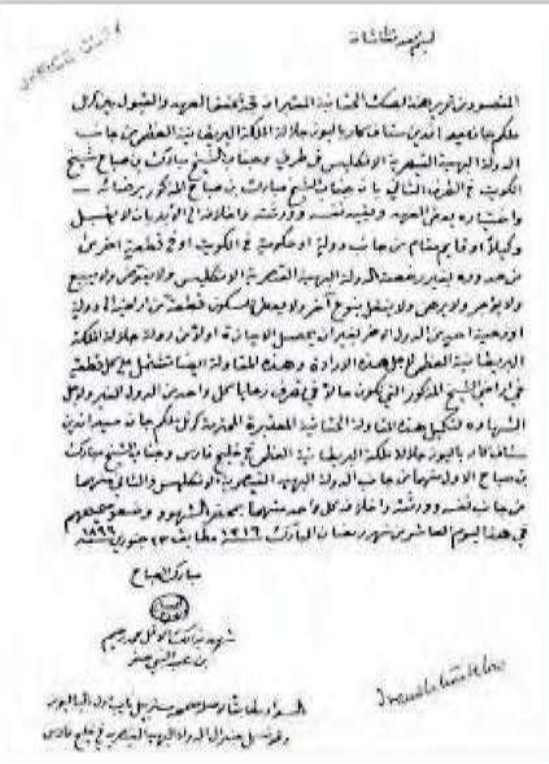 المقصود من تحرير هذه الصك الحقانية المعتبرة هو تحقق العهد والقبول بين كرنل
ملكم جان ميد باليوز جلالة الملكة البريطانية العظمى من جانب
الدولة البهية القيصرية الانكليس في طرف وجناب الشيخ مبارك بن صباح شيخ
الكويت في الطرف الثاني بان جناب الشيخ مبارك بن صباح المذكور برضائه
واختياره يعطي العهد ويقيد نفسه وورثته واخلافه الى الأبد بان لا يقبل
وكيلا او قايم مقام من جانب دولة او حكومة في الكويت او في قطعة اخرى
من حدوده بغير رخصة الدولة البهية القيصرية الانكليس ولا يفوض ولا يبيع
ولا يؤجر ولا يرهن ولا ينقل بنوع آخر ولا يعطي للسكون قطعة من اراضيه الى دولة
او رعية احد من الدول الاخر بغير ان يحصل الاجازة اولا من دولة جلالة الملكة
البريطانية العظمى لاجل هذه الارادة وهذه المقاولة ايضا تشتمل على كل قطعة
في اراضي الشيخ المذكور التي تكون حالا في تصرف رعايا كل واحد من الدول الغير ولاجل
الشهادة لتكميل هذه المقاولة الحقانية المعتبرة كرنل ملكم جان ميد
باليوز جلالة ملكة البريطانية العظمى في خليج فارس وجناب الشيخ مبارك
بن صباح الاول منهما من جانب الدولة البهية القيصرية الانكليس والثاني منهما
من جانب نفسه وورثته واخلافه كل واحد منهما بمحضر الشهود وضعوا
في هذا اليوم العاشر من شهر رمضان المبارك ١٣١٦ مطابق ٢٣ جنوري
مبارك الصباح
شهد بذلك الاقل محمد رحيم
بن عبد النبي صفر
جنرال الدولة البهية القيصرية في خليج فارس